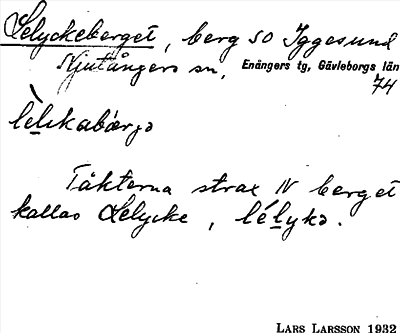 Lelyckeberget, berg SO Iggesund
Njutångers sn, Enångers tg, Gävleborgs län
74
Täkterna strax N berget
kallas Lelycke, lélykə.
LARS LARSSON 1932